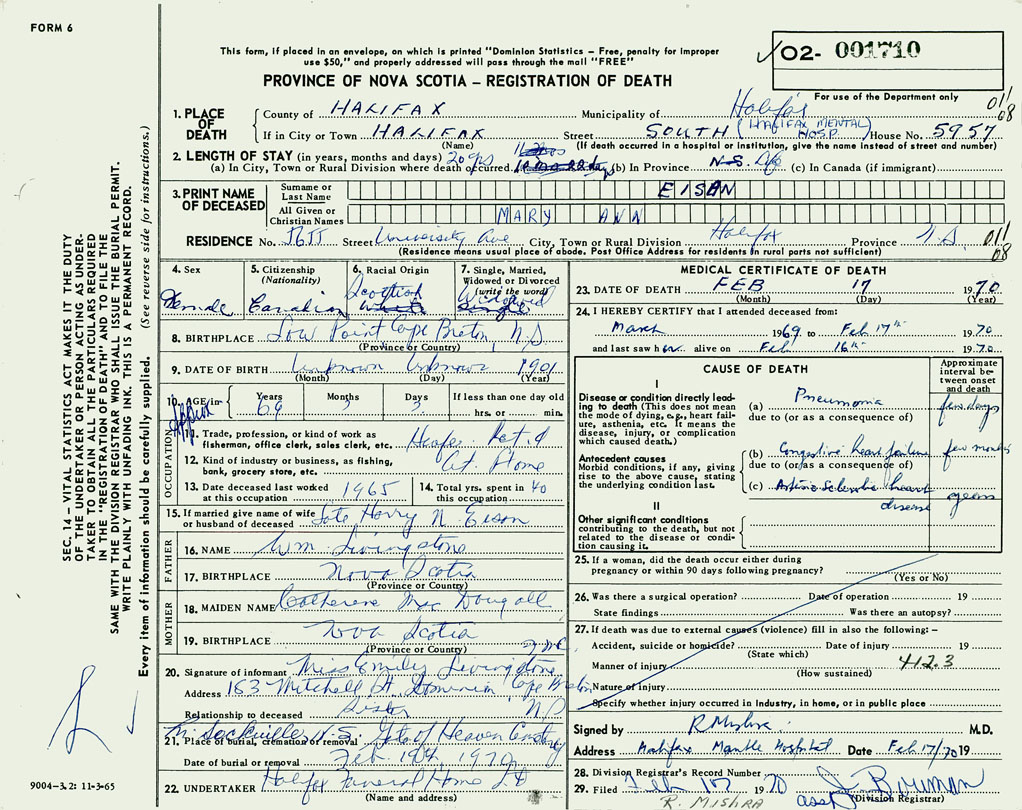 FORM 6
This form, if placed in an envelope, on which is printed "Dominion Statistics – Free, penalty for improper
use $50," and properly addressed will pass through the mail "FREE"
02- 001710
PROVINCE OF NOVA SCOTIA – REGISTRATION OF DEATH
For use of the Department only
011
08
1. PLACE OF DEATH
County of HALIFAX Municipality of Halifax
If in City or Town HALIFAX Street SOUTH (HALIFAX MENTAL HOSP.) House No. 5957
(Name) (If death occurred in a hospital or institution, give the name instead of street and number)
2. LENGTH OF STAY (in years, months and days)
(a) In City, Town or Rural Division where death occurred 20 yrs (b) In Province N.S. Life (c) In Canada (if immigrant)
3. PRINT NAME OF DECEASED
Surname or Last Name EISAN
All Given or Christian Names MARY ANN
RESIDENCE No. Street University Ave City, Town or Rural Division Halifax Province N.S
011
08
(Residence means usual place of abode. Post Office Address for residents in rural parts not sufficient)
4. Sex Female
5. Citizenship (Nationality) Canadian
6. Racial Origin Scottish
7. Single, Married, Widowed or Divorced (write the word) Widowed
8. BIRTHPLACE Low Point Cape Breton, N.S
(Province or Country)
9. DATE OF BIRTH Unknown Unknown 1901
(Month) (Day) (Year)
10. AGE/in– Approx Years 69 Months 3 Days 3 If less than one day old
hrs. or min.
OCCUPATION
11. Trade, profession, or kind of work as
fisherman, office clerk, sales clerk, etc. Ret'd
12. Kind of industry or business, as fishing,
bank, grocery store, etc. At Home
13. Date deceased last worked
at this occupation 1965
14. Total yrs. spent in
this occupation 40
15. If married give name of wife
or husband of deceased Late Harry N. Eisan
FATHER
16. NAME Wm Livingstone
17. BIRTHPLACE Nova Scotia
(Province or Country)
MOTHER
18. MAIDEN NAME Catherene MacDougall
19. BIRTHPLACE Nova Scotia
(Province or Country)
20. Signature of informant Miss Emily Livingstone
Address 163 Mitchell St Dominion Cape Breton N.S
Relationship to deceased Sister
21. Place of burial, cremation or removal Sackville N.S. Gate of Heaven Cemetery
Date of burial or removal Feb. 19th, 1970
22. UNDERTAKER Halifax Funeral Home Ltd
(Name and address)
MEDICAL CERTIFICATE OF DEATH
23. DATE OF DEATH FEB 17 1970
(Month) (Day) (Year)
24. I HEREBY CERTIFY that I attended deceased from:
March 1969 to Feb 17th 1970
and last saw her alive on Feb 16th 1970
CAUSE OF DEATH
Approximate interval between onset and death
I
Disease or condition directly leading to death (This does not mean the mode of dying, e.g., heart failure, asthenia, etc. It means the disease, injury, or complication which caused death.)
(a) Pneumonia few days
due to (or as a consequence of)
Antecedent causes
Morbid conditions, if any, giving rise to the above cause, stating the underlying condition last.
(b) Congestive heart failure few months
due to (or as a consequence of)
(c) heart disease years
II
Other significant conditions
contributing to the death, but not related to the disease or condition causing it.
25. If a woman, did the death occur either during
pregnancy or within 90 days following pregnancy?
(Yes or No)
26. Was there a surgical operation? Date of operation 19
State findings Was there an autopsy?
27. If death was due to external causes (violence) fill in also the following: –
Accident, suicide or homicide? Date of injury 19
(State which)
Manner of injury 412.3
(How sustained)
Nature of injury
Specify whether injury occurred in industry, in home, or in public place
Signed by R Mishra M.D.
Address Halifax Mantle Hospital Date Feb 17/70 19
28. Division Registrar's Record Number
29. Filed Feb 1970 Bowman
asst (Division Registrar)
R. MISHRA
SEC. 14 – VITAL STATISTICS ACT MAKES IT THE DUTY
OF THE UNDERTAKER OR PERSON ACTING AS UNDER-
TAKER TO OBTAIN ALL THE PARTICULARS REQUIRED
IN THE "REGISTRATION OF DEATH" AND TO FILE THE
SAME WITH THE DIVISION REGISTRAR WHO SHALL ISSUE THE BURIAL PERMIT.
WRITE PLAINLY WITH UNFADING INK. THIS IS A PERMANENT RECORD.
Every item of information should be carefully supplied. (See reverse side for instructions.)
9004–3.2: 11-3-65